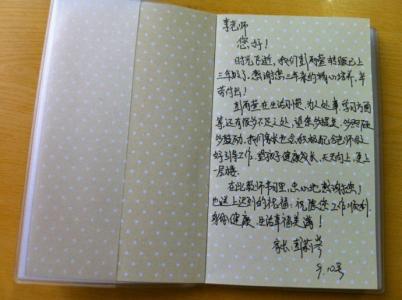 李老师
您好！
时光飞逝，我们彭雨萱转眼已上
三年级了，感谢您三年来的精心培养，辛
苦付出！
彭雨萱在生活习惯、为人处事、学习方面
等，还有很多不足之处，望您多提点，多
多鼓励，我们家长也会积极配合老师做
好引导工作，愿孩子健康成长，天天向上，更上
一层楼。
在此教师节里，忠心地感谢您！
也送上迟到的祝福，祝愿您工作顺利，
身体健康，生活幸福美满！
家长：彭
9.10号